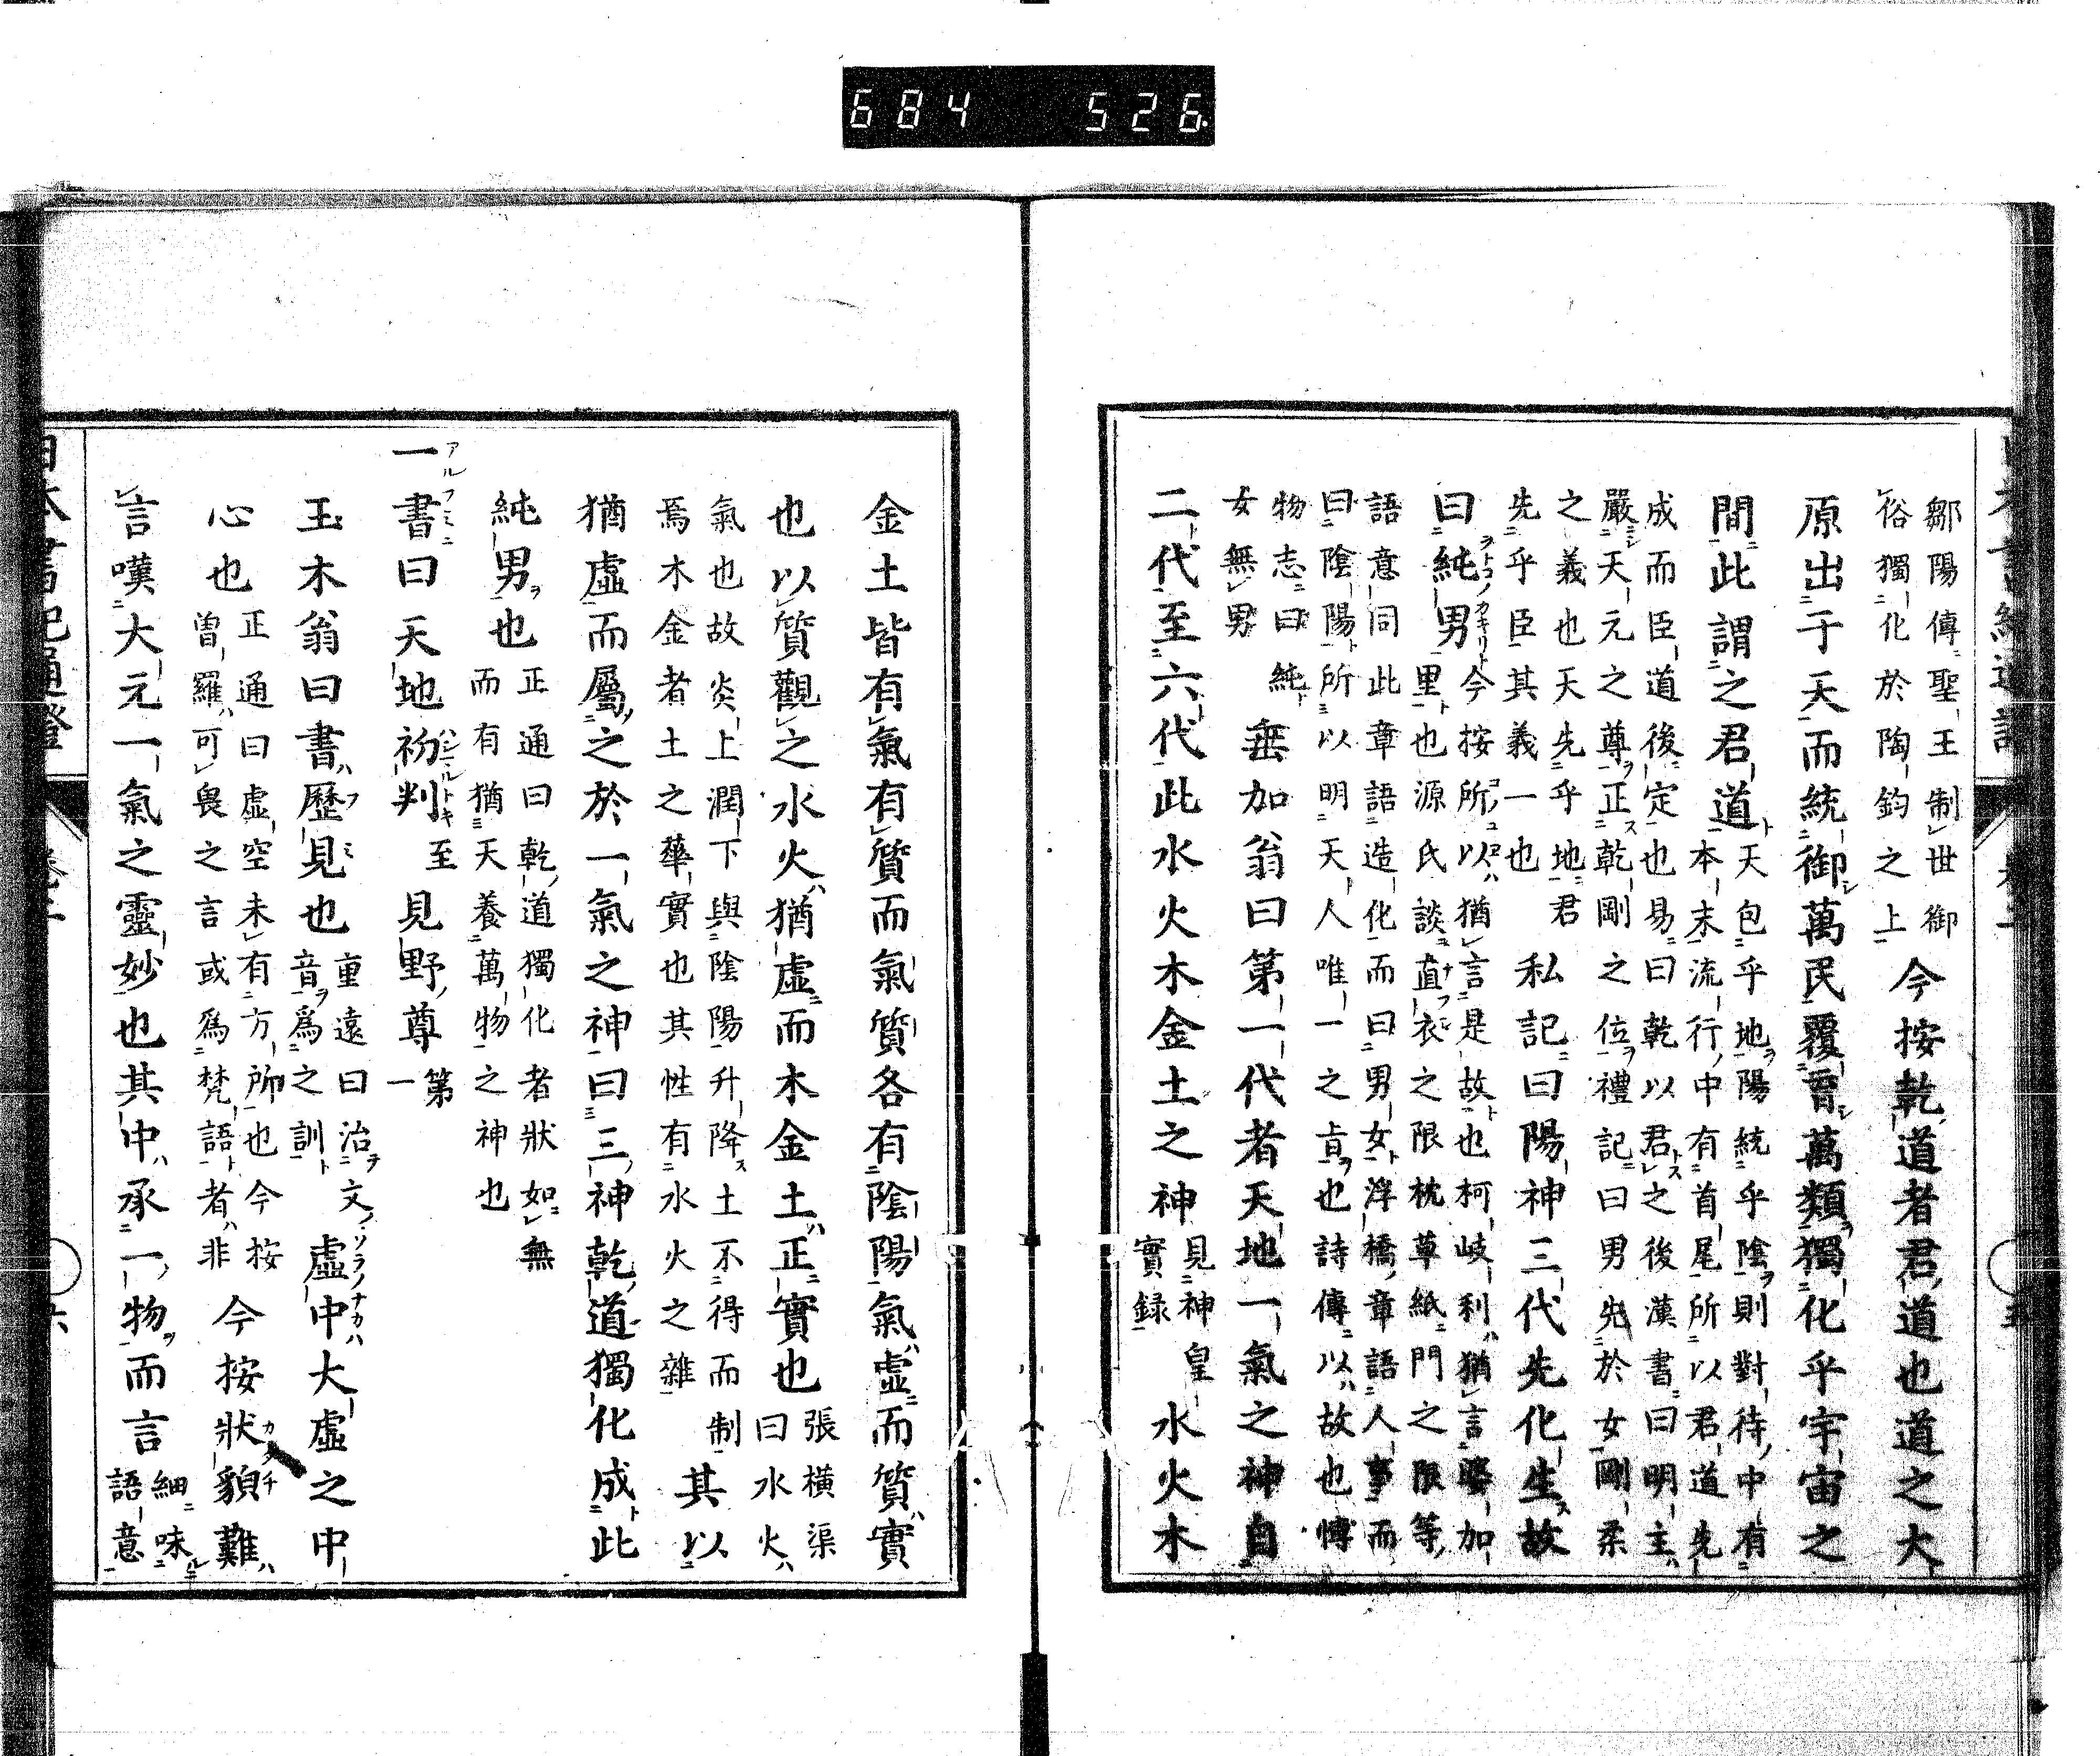 684 526
鄒陽傳聖王制世御
俗獨化於陶鈞之上
今按乾道者君道也道之大
原出于天而統御萬民覆育萬類獨化乎宇宙之
間此謂之君道
天包乎地陽統乎陰則對待中有
本末流行中有首尾所以君道先
成而臣道後定也易曰乾以君之後漢書曰明主
嚴天元之尊正乾剛之位禮記曰男先於女剛柔
之義也天先乎地君
先乎臣其義一也
私記曰陽神三代先化生故
曰純男
今按所以猶言是故也柯岐利猶言婆加
里也源氏談直衣之限枕草紙門之限等
語意同此章語造化而曰男女浮橋章語人事而
曰陰陽所以明天人唯一之㫖也詩傳以故也愽
物志曰純
女無男
垂加翁曰第一代者天地一氣之神自
二代至六代此水火木金土之神
見神皇
實録
水火木
金土皆有氣有質而氣質各有陰陽氣虛而質實
也以質觀之水火猶虛而木金土正實也
張横渠
曰水火
氣也故炎上潤下與陰陽升降土不得而制
焉木金者土之華實也其性有水火之雜
其以
猶虛而屬之於一氣之神曰三神乾道獨化成此
純男也
正通曰乾道獨化者狀如無
而有猶天養萬物之神也
一書曰天地初判至見野尊第一
玉木翁曰書歷見也
重遠曰治文
音爲之訓
虛中大虛之中
心也
正通曰虛空未有方所也今按
曽羅可畏之言或爲梵語者非
今按狀貌難
言嘆大元一氣之靈妙也其中承一物而言
細味
語意
日本書紀通證
卷二
六